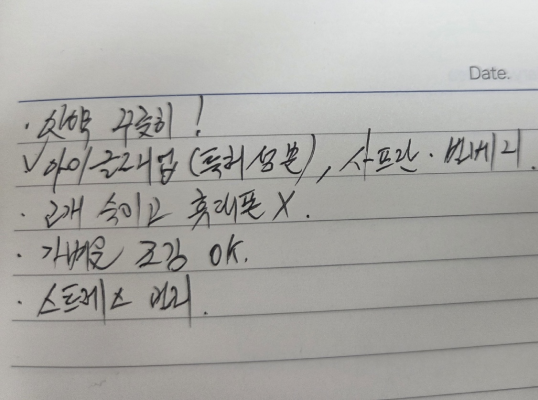 Date.
· 안약 꾸준히!
✓ 아이클리어업(특허성분), 사프란·빌베리.
· 고개 숙이고 휴대폰 X.
· 가벼운 조깅 OK.
· 스트레스 관리.